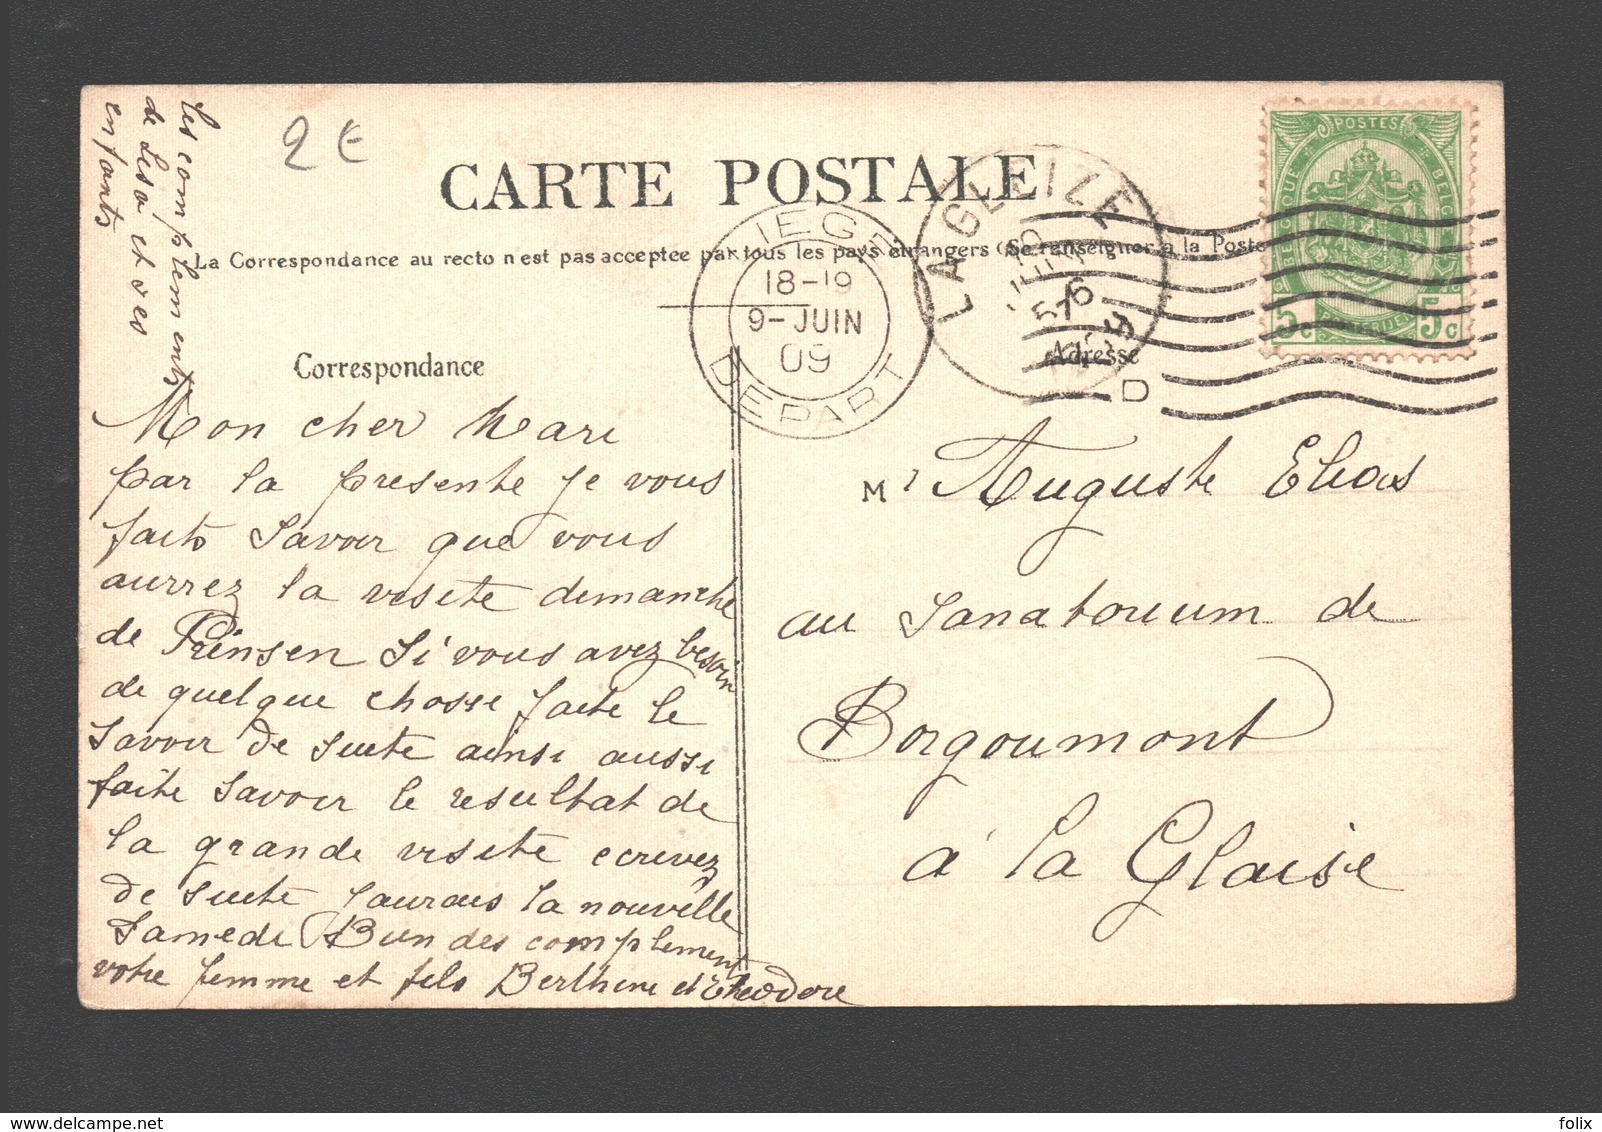 les complements
de Lisa et ses
enfants
2 €
CARTE POSTALE
La Correspondance au recto n'est pas acceptée par tous les pays étrangers (Se renseigner à la Poste
LIEGE
18-19
9-JUIN
09
DEPART
LA GLEIZE
POSTES
BELGIQUE
5c 5c
D
Correspondance
Adresse
Mon cher Mari
par la presente je vous
faits savoir que vous
aurrez la visite dimanche
de Prinsen Si vous avez besoin
de quelque chosse faite le
savoir de suite ainsi aussi
faite savoir le resultat de
la grande visite ecrivez
de suite jaurais la nouvelle
Samedi Bien des complement
votre femme et fils Berthine et Theodore
M r Auguste Elias
au Sanatorium de
Borgoumont
à la Glaise
folix